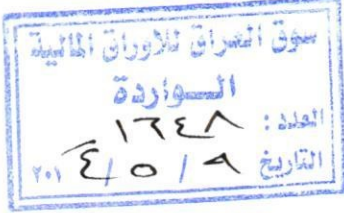 سوق العراق للاوراق المالية
الـــواردة
العدد : ١٦٤٨
التاريخ ٩ / ٥ / ٢٠١٤